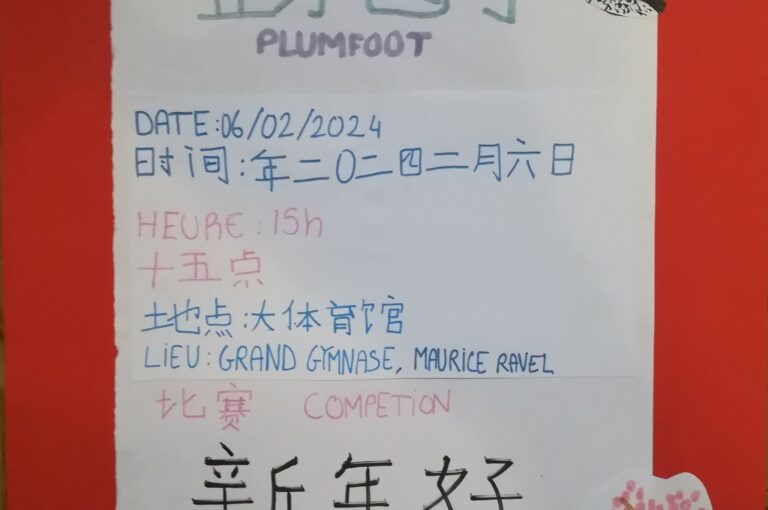 PLUMFOOT
DATE:06/02/2024
时间:年二〇二四二月六日
HEURE: 15h
十五点
土地点:大体育馆
LIEU: GRAND GYMNASE, MAURICE RAVEL
比赛 COMPETION
新年好